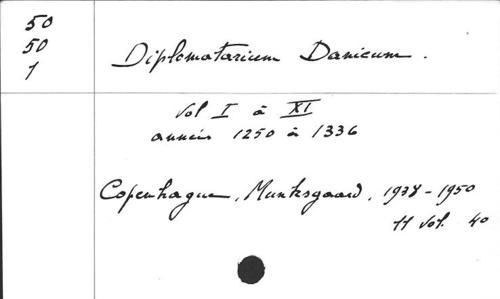 50
50
1
Diplomatarium Danicum.
Vol I à XI
années 1250 à 1336
Copenhague, Munksgaard, 1938-1950
11 vol. 40